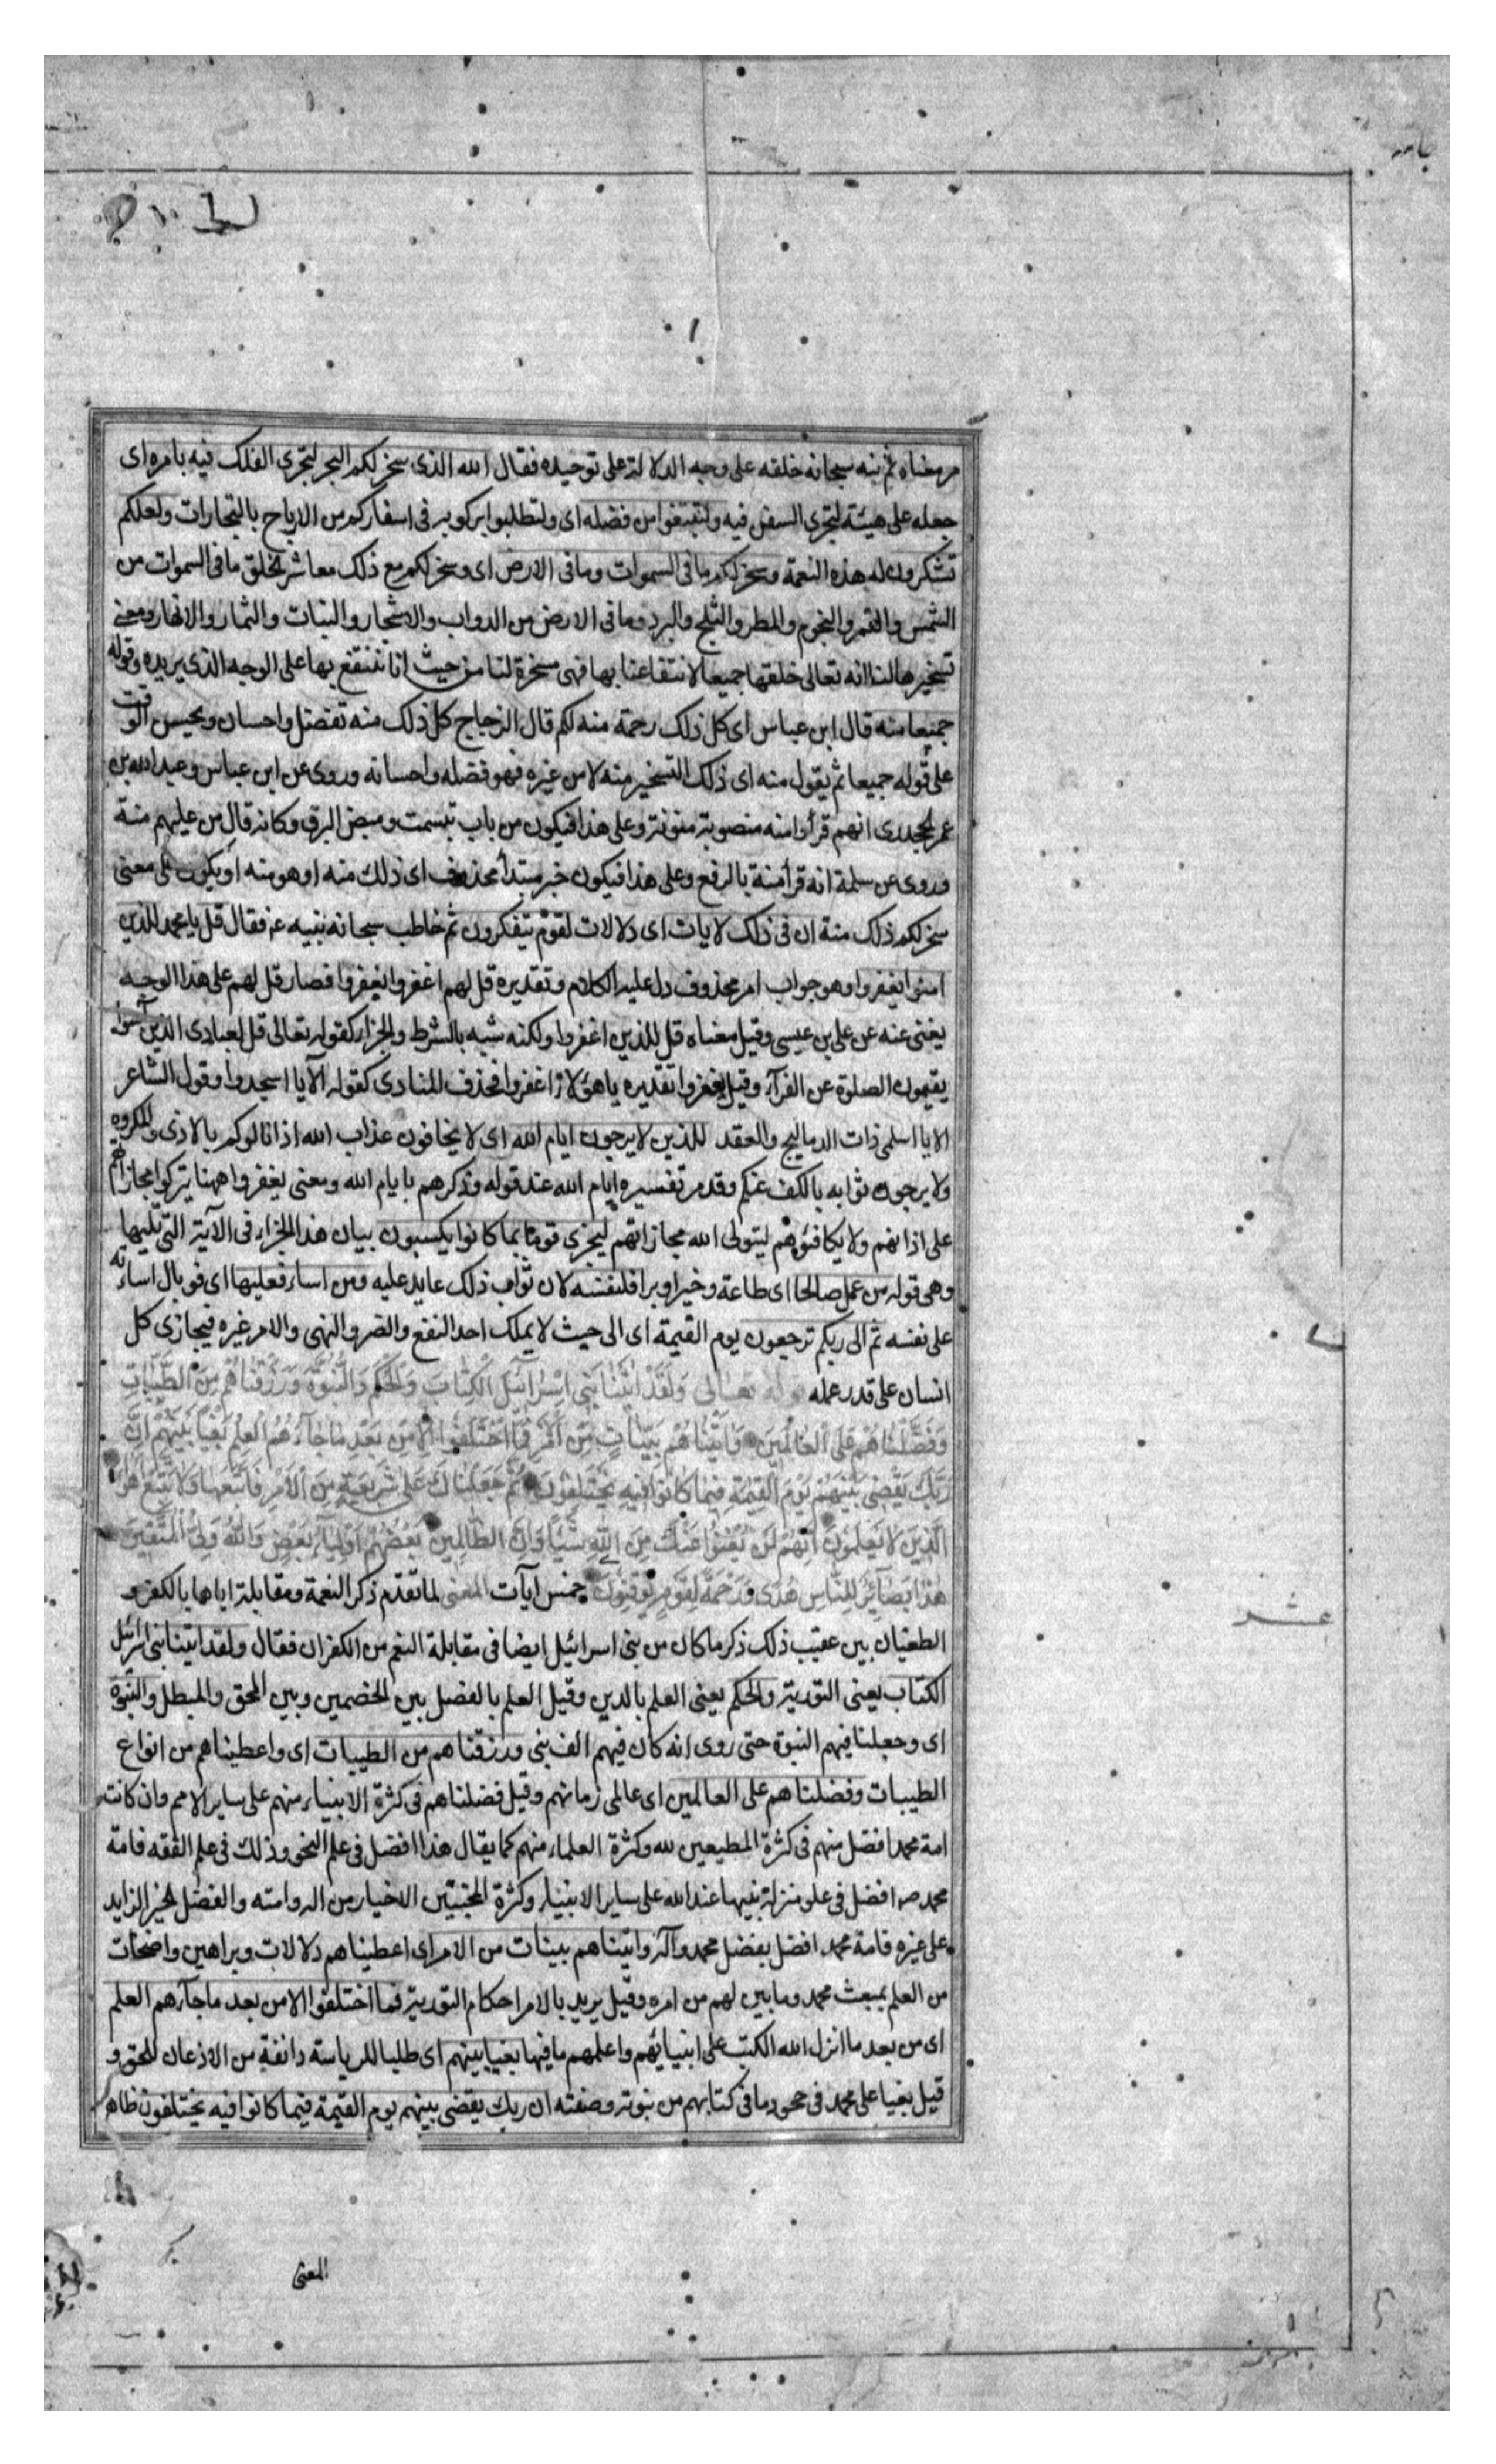 مر معناه ثم نبه سبحانه خلقه على وجه الدلالة على توحيده فقال الله الذى سخر لكم البحر لتجرى الفلك فيه بامره اى
جعله على هيئة لتجرى السفن فيه ولتبتغوا من فضله اى ولتطلبوا بركوبه فى اسفاركم من الارباح بالتجارات ولعلكم
تشكرون له هذه النعمة وسخر لكم ما فى السموات وما فى الارض اى وسخر لكم مع ذلك معاشر الخلق ما فى السموات من
الشمس والقمر والنجوم والمطر والثلج والبرد وما فى الارض من الدواب والاشجار والنبات والثمار والانهار ومعنى
تسخيرها لنا انه تعالى خلقها جميعا لانتفاعنا بها فهى مسخرة لنا من حيث انا ننتفع بها على الوجه الذى يريده وقوله
جميعا منه قال ابن عباس اى كل ذلك رحمة منه لكم قال الزجاج كل ذلك منه تفضل واحسان ويحسن الوقف
على قوله جميعا ثم يقول منه اى ذلك التسخير منه لا من غيره فهو فضله واحسانه وروى عن ابن عباس وعبد الله بن
عمر والجحدرى انهم قرأوا منه منصوبة منونة وعلى هذا فيكون من باب تبسمت وميض البرق وكانه قال من عليهم منة
وروى عن سلمة انه قرأ منة بالرفع وعلى هذا فيكون خبر مبتدأ محذوف اى ذلك منه او هو منه او يكون على معنى
سخر لكم ذلك منة ان فى ذلك لايات اى دلالات لقوم يتفكرون ثم خاطب سبحانه نبيه ع فقال قل يا محمد للذين
امنوا يغفروا وهو جواب امر محذوف دل عليه الكلام وتقديره قل لهم اغفروا يغفروا فصار قل لهم على هذا الوجه
يغنى عنه عن على بن عيسى وقيل معناه قل للذين اغفروا ولكنه شبه بالشرط والجزاء كقوله تعالى قل لعبادى الذين آمنوا
يقيموا الصلوة عن الفرآء وقيل يغفروا تقديره يا هؤلاء اغفروا فحذف المنادى كقوله الآيا اسجدوا وقول الشاعر
الا يا اسلمى ذات الدماليج والعقد للذين لا يرجون ايام الله اى لا يخافون عذاب الله اذا نالوكم بالاذى والمكروه
ولا يرجون ثوابه بالكف عنكم وقد مر تفسيره ايام الله عند قوله وذكرهم بايام الله ومعنى يغفروا ههنا يتركوا مجازاتهم
على اذاهم ولا يكافئوهم ليتولى الله مجازاتهم ليجزى قوما بما كانوا يكسبون بيان هذا الجزاء فى الآية التى تليها
وهى قوله من عمل صالحا اى طاعة وخيرا وبرا فلنفسه لان ثواب ذلك عايد عليه ومن اساء فعليها اى فوبال اساءته
على نفسه ثم الى ربكم ترجعون يوم القيمة اى الى حيث لا يملك احد النفع والضر والنهى والامر غيره فيجازى كل
انسان على قدر عمله قوله تعالى وَلَقَدْ اتَيْنَا بَنِى اِسْرَآئيلَ الْكِتَابَ وَالْحُكْمَ وَالنُّبُوَّةَ وَرَزَقْنَاهُمْ مِنَ الطَّيِّبَاتِ
وَفَضَّلْنَاهُمْ عَلَى الْعَالَمِينَ وَآتَيْنَاهُمْ بَيِّنَاتٍ مِنَ الْاَمْرِ فَمَا اخْتَلَفُوا اِلَّا مِنْ بَعْدِ مَا جَآءَهُمُ الْعِلْمُ بَغْيًا بَيْنَهُمْ اِنَّ
رَبَّكَ يَقْضِى بَيْنَهُمْ يَوْمَ الْقِيمَةِ فِيمَا كَانُوا فِيهِ يَخْتَلِفُونَ ثُمَّ جَعَلْنَاكَ عَلَى شَرِيعَةٍ مِنَ الْاَمْرِ فَاتَّبِعْهَا وَلَا تَتَّبِعْ اَهْوَآءَ
الَّذِينَ لَا يَعْلَمُونَ اِنَّهُمْ لَنْ يُغْنُوا عَنْكَ مِنَ اللهِ شَيْئًا وَاِنَّ الظَّالِمِينَ بَعْضُهُمْ اَوْلِيَآءُ بَعْضٍ وَاللهُ وَلِىُّ الْمُتَّقِينَ
هَذَا بَصَآئِرُ لِلنَّاسِ هُدًى وَرَحْمَةٌ لِقَوْمٍ يُوقِنُونَ خمس آيات المعنى لما تقدم ذكر النعمة ومقابلة اياها بالكفر و
الطغيان بين عقيب ذلك ذكر ما كان من بنى اسرائيل ايضا فى مقابلة النعم من الكفران فقال ولقد اتينا بنى اسرائيل
الكتاب يعنى التورية والحكم يعنى العلم بالدين وقيل العلم بالفصل بين الخصمين وبين المحق والمبطل والنبوة
اى وجعلنا فيهم النبوة حتى روى انه كان فيهم الف نبى ورزقناهم من الطيبات اى واعطيناهم من انواع
الطيبات وفضلناهم على العالمين اى عالمى زمانهم وقيل فضلناهم فى كثرة الانبياء منهم على ساير الامم وان كانت
امة محمد افضل منهم فى كثرة المطيعين لله وكثرة العلماء منهم كما يقال هذا افضل فى علم النحو وذلك فى علم الفقه فامة
محمد ص افضل فى علو منزلة نبيها عند الله على ساير الانبياء وكثرة المجتبين الاخيار من اله وامته والفضل الخير الزايد
على غيره فامة محمد افضل بفضل محمد وآله واتيناهم بينات من الامر اى اعطيناهم دلالات وبراهين واضحات
من العلم بمبعث محمد وما بين لهم من امره وقيل يريد بالامر احكام التورية فما اختلفوا الا من بعد ما جآءهم العلم
اى من بعد ما انزل الله الكتب على انبيائهم واعلمهم ما فيها بغيا بينهم اى طلبا للرياسة وانفة من الاذعان للحق و
قيل بغيا على محمد فى جحود ما فى كتابهم من نبوته وصفته ان ربك يقضى بينهم يوم القيمة فيما كانوا فيه يختلفون ظاهر
عشر
المعنى